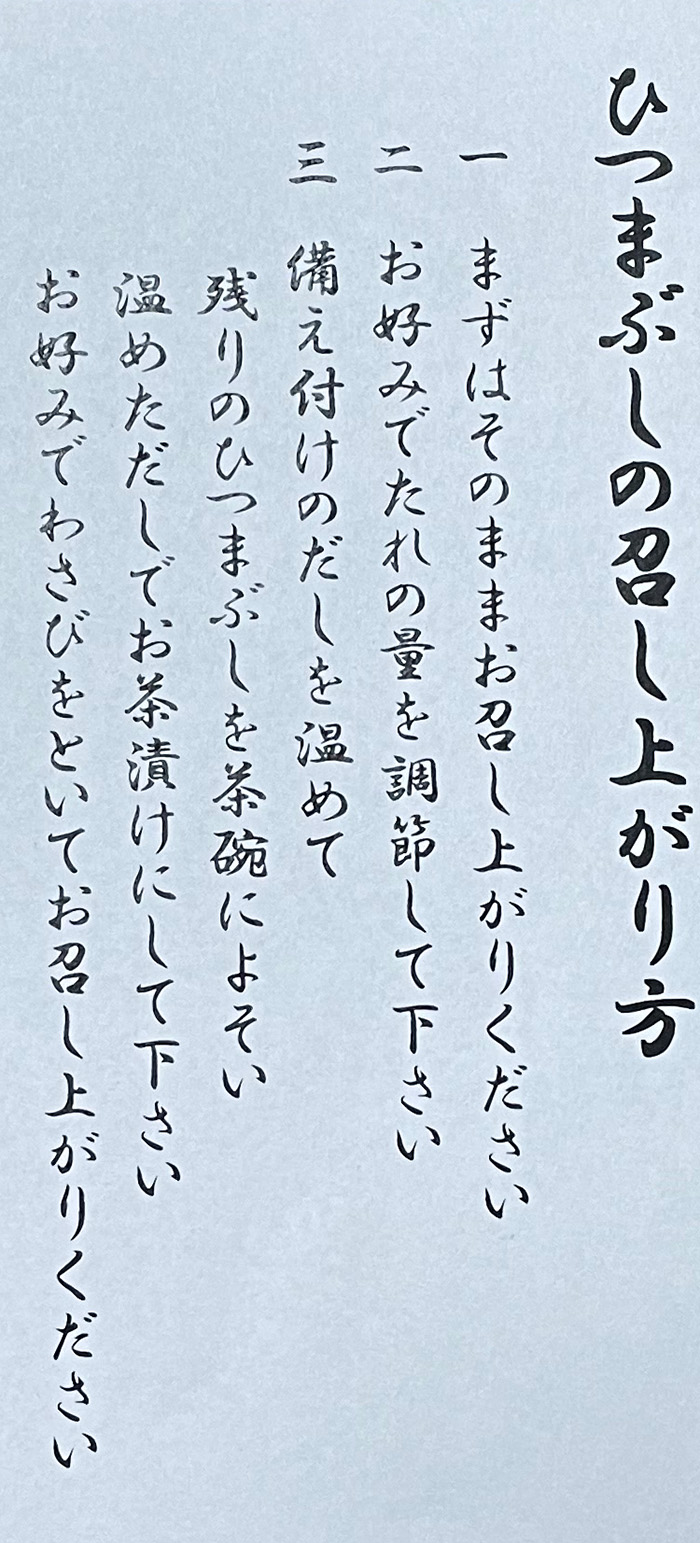 ひつまぶしの召し上がり方
一 まずはそのままお召し上がりください
二 お好みでたれの量を調節して下さい
三 備え付けのだしを温めて
残りのひつまぶしを茶碗によそい
温めただしでお茶漬けにして下さい
お好みでわさびをといてお召し上がりください